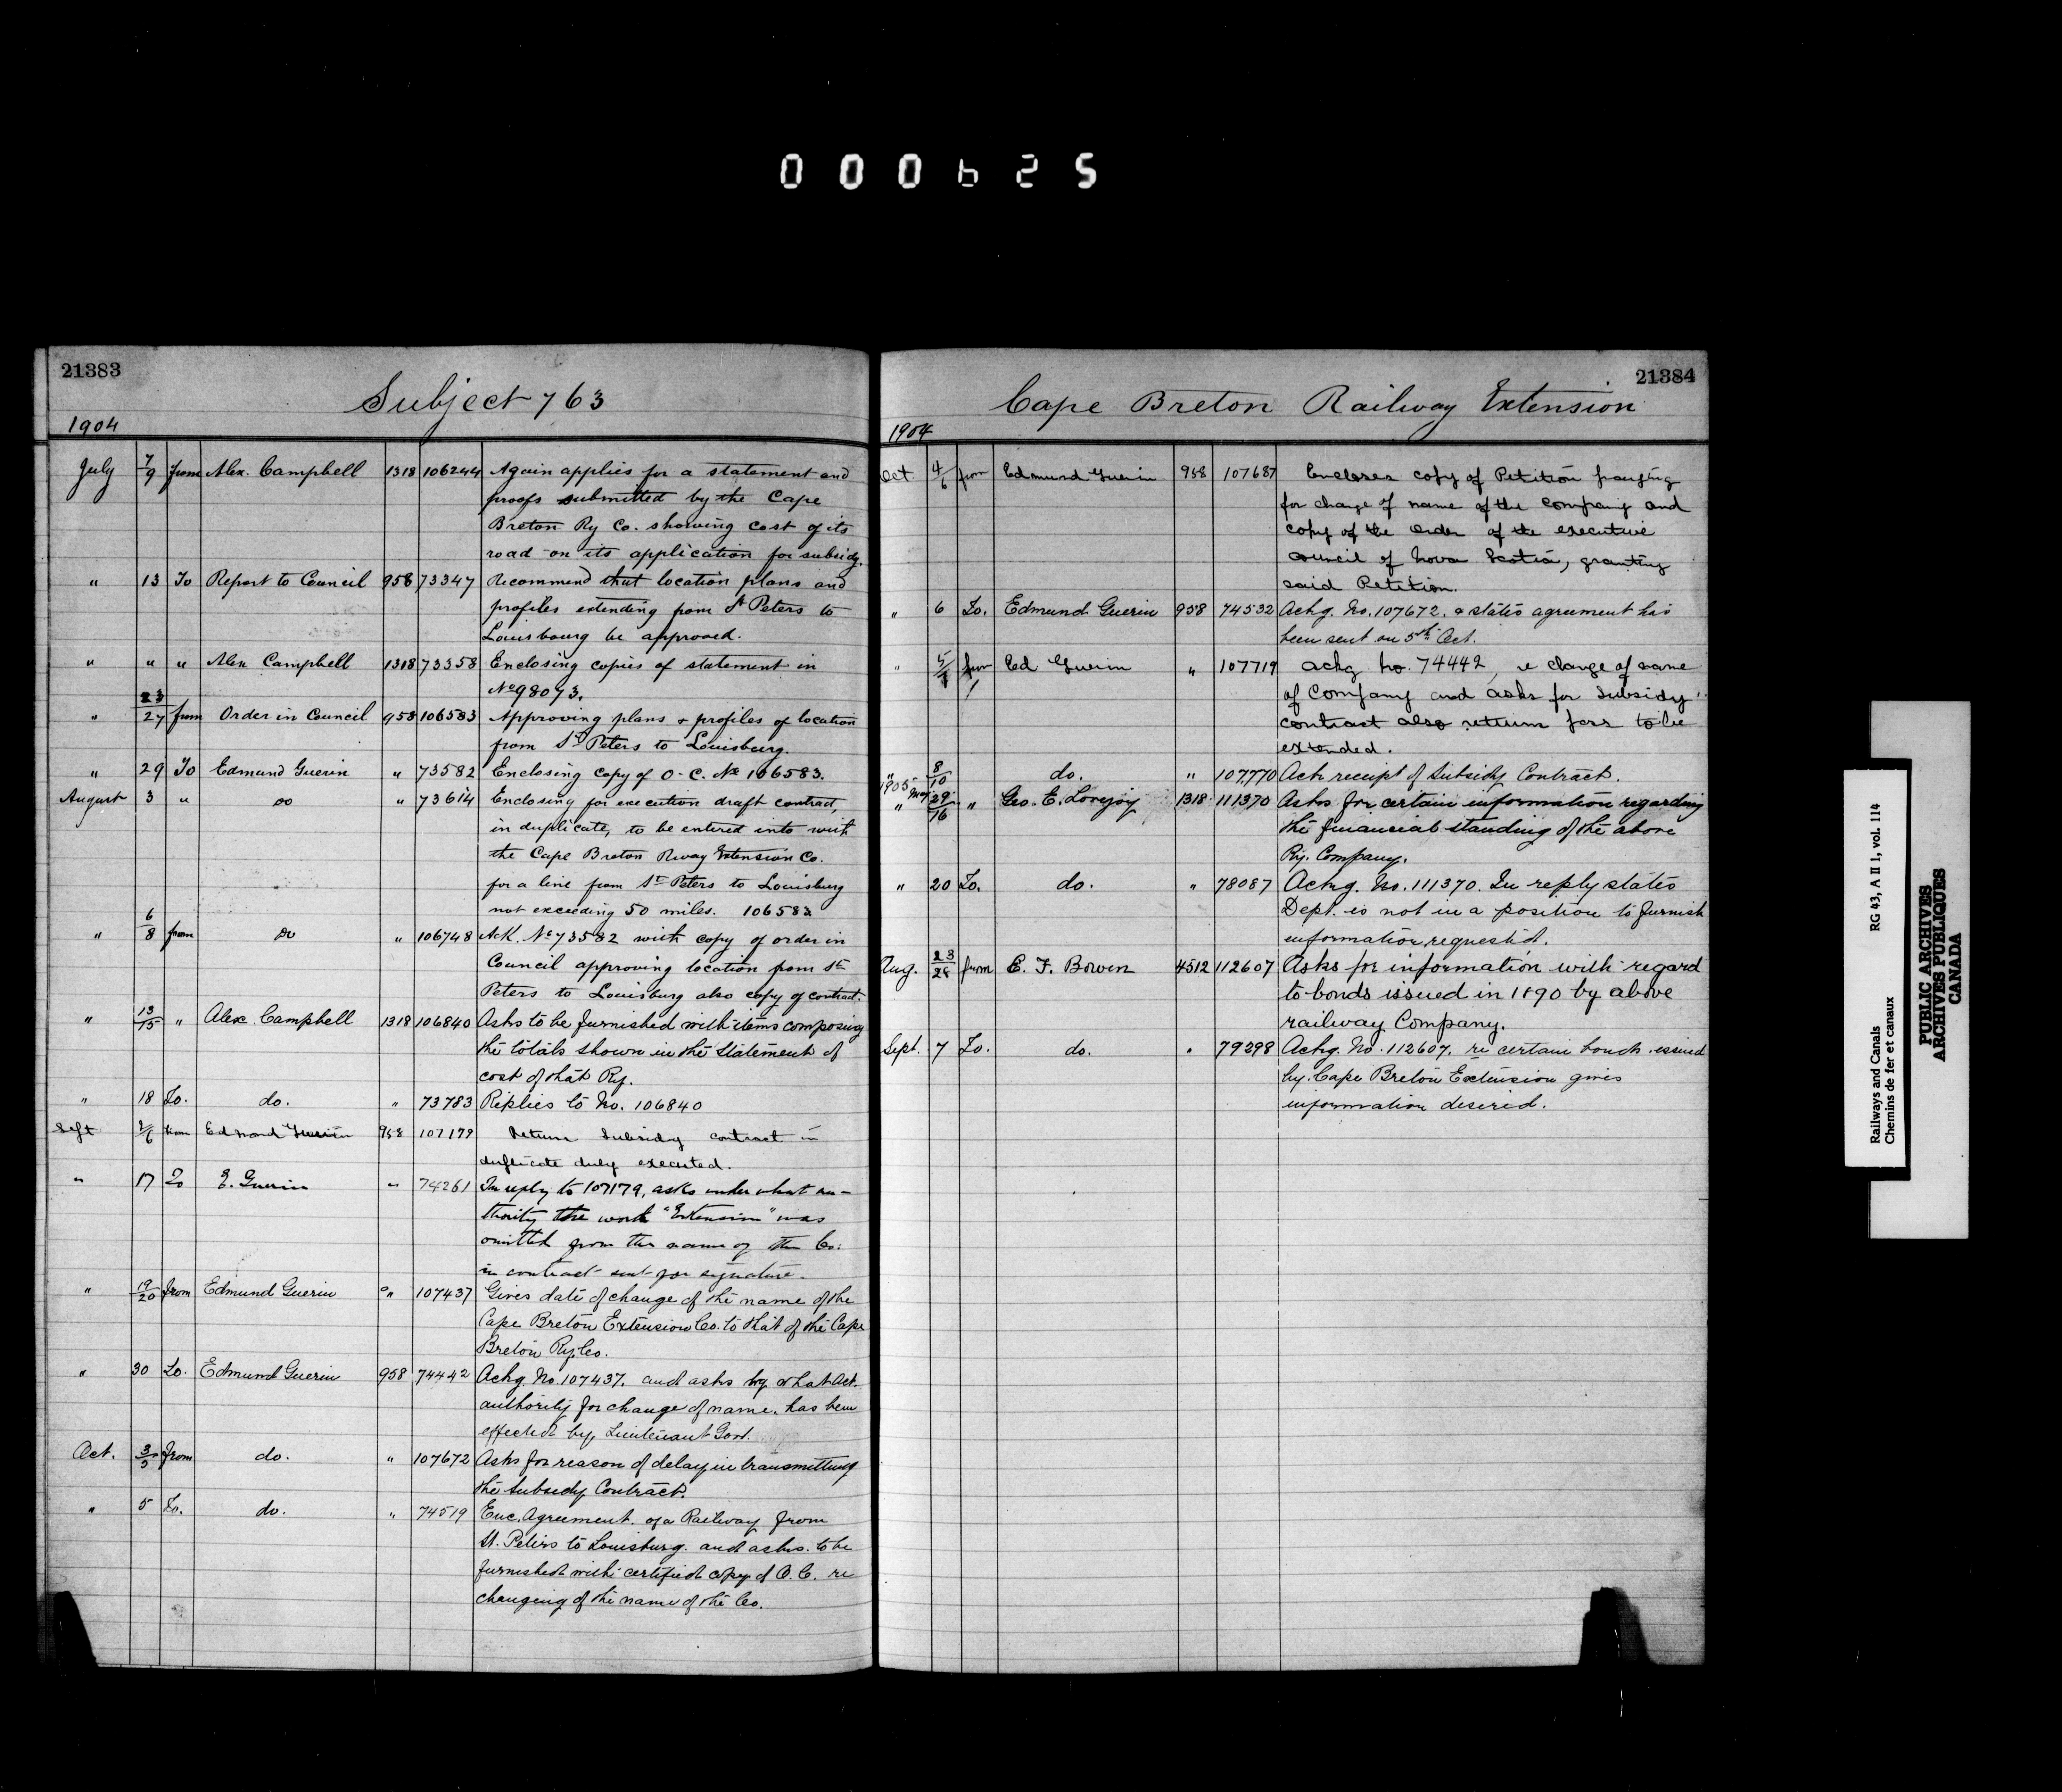 000625
21383
Subject 763
1904
July 7/9 from Alex. Campbell 1318 106244 Again applies for a statement and
proofs submitted by the Cape
Breton Ry Co. showing cost of its
road on its application for subsidy.
" 13 To Report to Council 958 73347 Recommend that location plans and
profiles extending from St Peters to
Louisbourg be approved.
" " " Alex Campbell 1318 73358 Enclosing copies of statement in
No 98073.
" 23/27 from Order in Council 958 106583 Approving plans & profiles of location
from St Peters to Louisburg.
" 29 To Edmund Guerin " 73582 Enclosing copy of O-C. No 106583.
August 3 " do " 73614 Enclosing for execution draft contract,
in duplicate, to be entered into with
the Cape Breton Rway Extension Co.
for a line from St Peters to Louisburg
not exceeding 50 miles. 106583
" 6/8 from do " 106748 Ack. No 73582 with copy of order in
Council approving location from St
Peters to Louisburg also copy of contract.
" 13/15 " Alex Campbell 1318 106840 Asks to be furnished with items composing
the totals shown in the Statement of
cost of that Ry.
" 18 To. do. " 73783 Replies to No. 106840
Sept from Edmund Guerin 958 107179 Return Subsidy contract in
duplicate duly executed.
" 17 To E. Guerin " 74261 In reply to 107179, asks under what au-
thority the work "Extension" was
omitted from the name of the Co.
in contract sent for signature.
" 19/20 from Edmund Guerin " 107437 Gives date of change of the name of the
Cape Breton Extension Co. to that of the Cape
Breton Ry. Co.
" 30 To. Edmund Guerin 958 74442 Ackg. No. 107437. and asks by what Act.
authority for change of name. has been
effected by Lieutenant Govt.
Oct. 3/5 from do. " 107672 Asks for reason of delay in transmitting
the Subsidy Contract.
" 5 To. do. " 74519 Enc. Agreement. of a Railway from
St. Peters to Louisburg. and asks. to be
furnished with certified copy of O.C. re
changing of the name of the Co.
21384
Cape Breton Railway Extension
1904
Oct 4/6 from Edmund Guerin 958 107687 Encloses copy of Petition praying
for change of name of the Company and
copy of the Order of the executive
council of Nova Scotia, granting
said Petition.
" 6 To. Edmund Guerin 958 74532 Ackg. No. 107672. & states agreement has
been sent on 5th Oct.
" from Ed Guerin " 107719 Ackg No. 74442, re change of name
of Company and asks for Subsidy
contract also return for to be
extended.
" 8/10 do. " 107,770 Ack receipt of Subsidy Contract.
1905 May 29 " Geo. E. Lovejoy 1318 111370 Asks for certain information regarding
the financial standing of the above
Ry. Company.
" 20 To. do. " 78087 Ackg. No. 111370. In reply states
Dept. is not in a position to furnish
information requested.
Aug. 23/28 from E. F. Bowen 4512 112607 Asks for information with regard
to bonds issued in 1890 by above
railway Company.
Sept. 7 To. do. " 79298 Ackg. No. 112607. re certain bonds issued
by Cape Breton Extension gives
information desired.
Railways and Canals RG 43, A II 1, vol. 114
Chemins de fer et canaux
PUBLIC ARCHIVES
ARCHIVES PUBLIQUES
CANADA